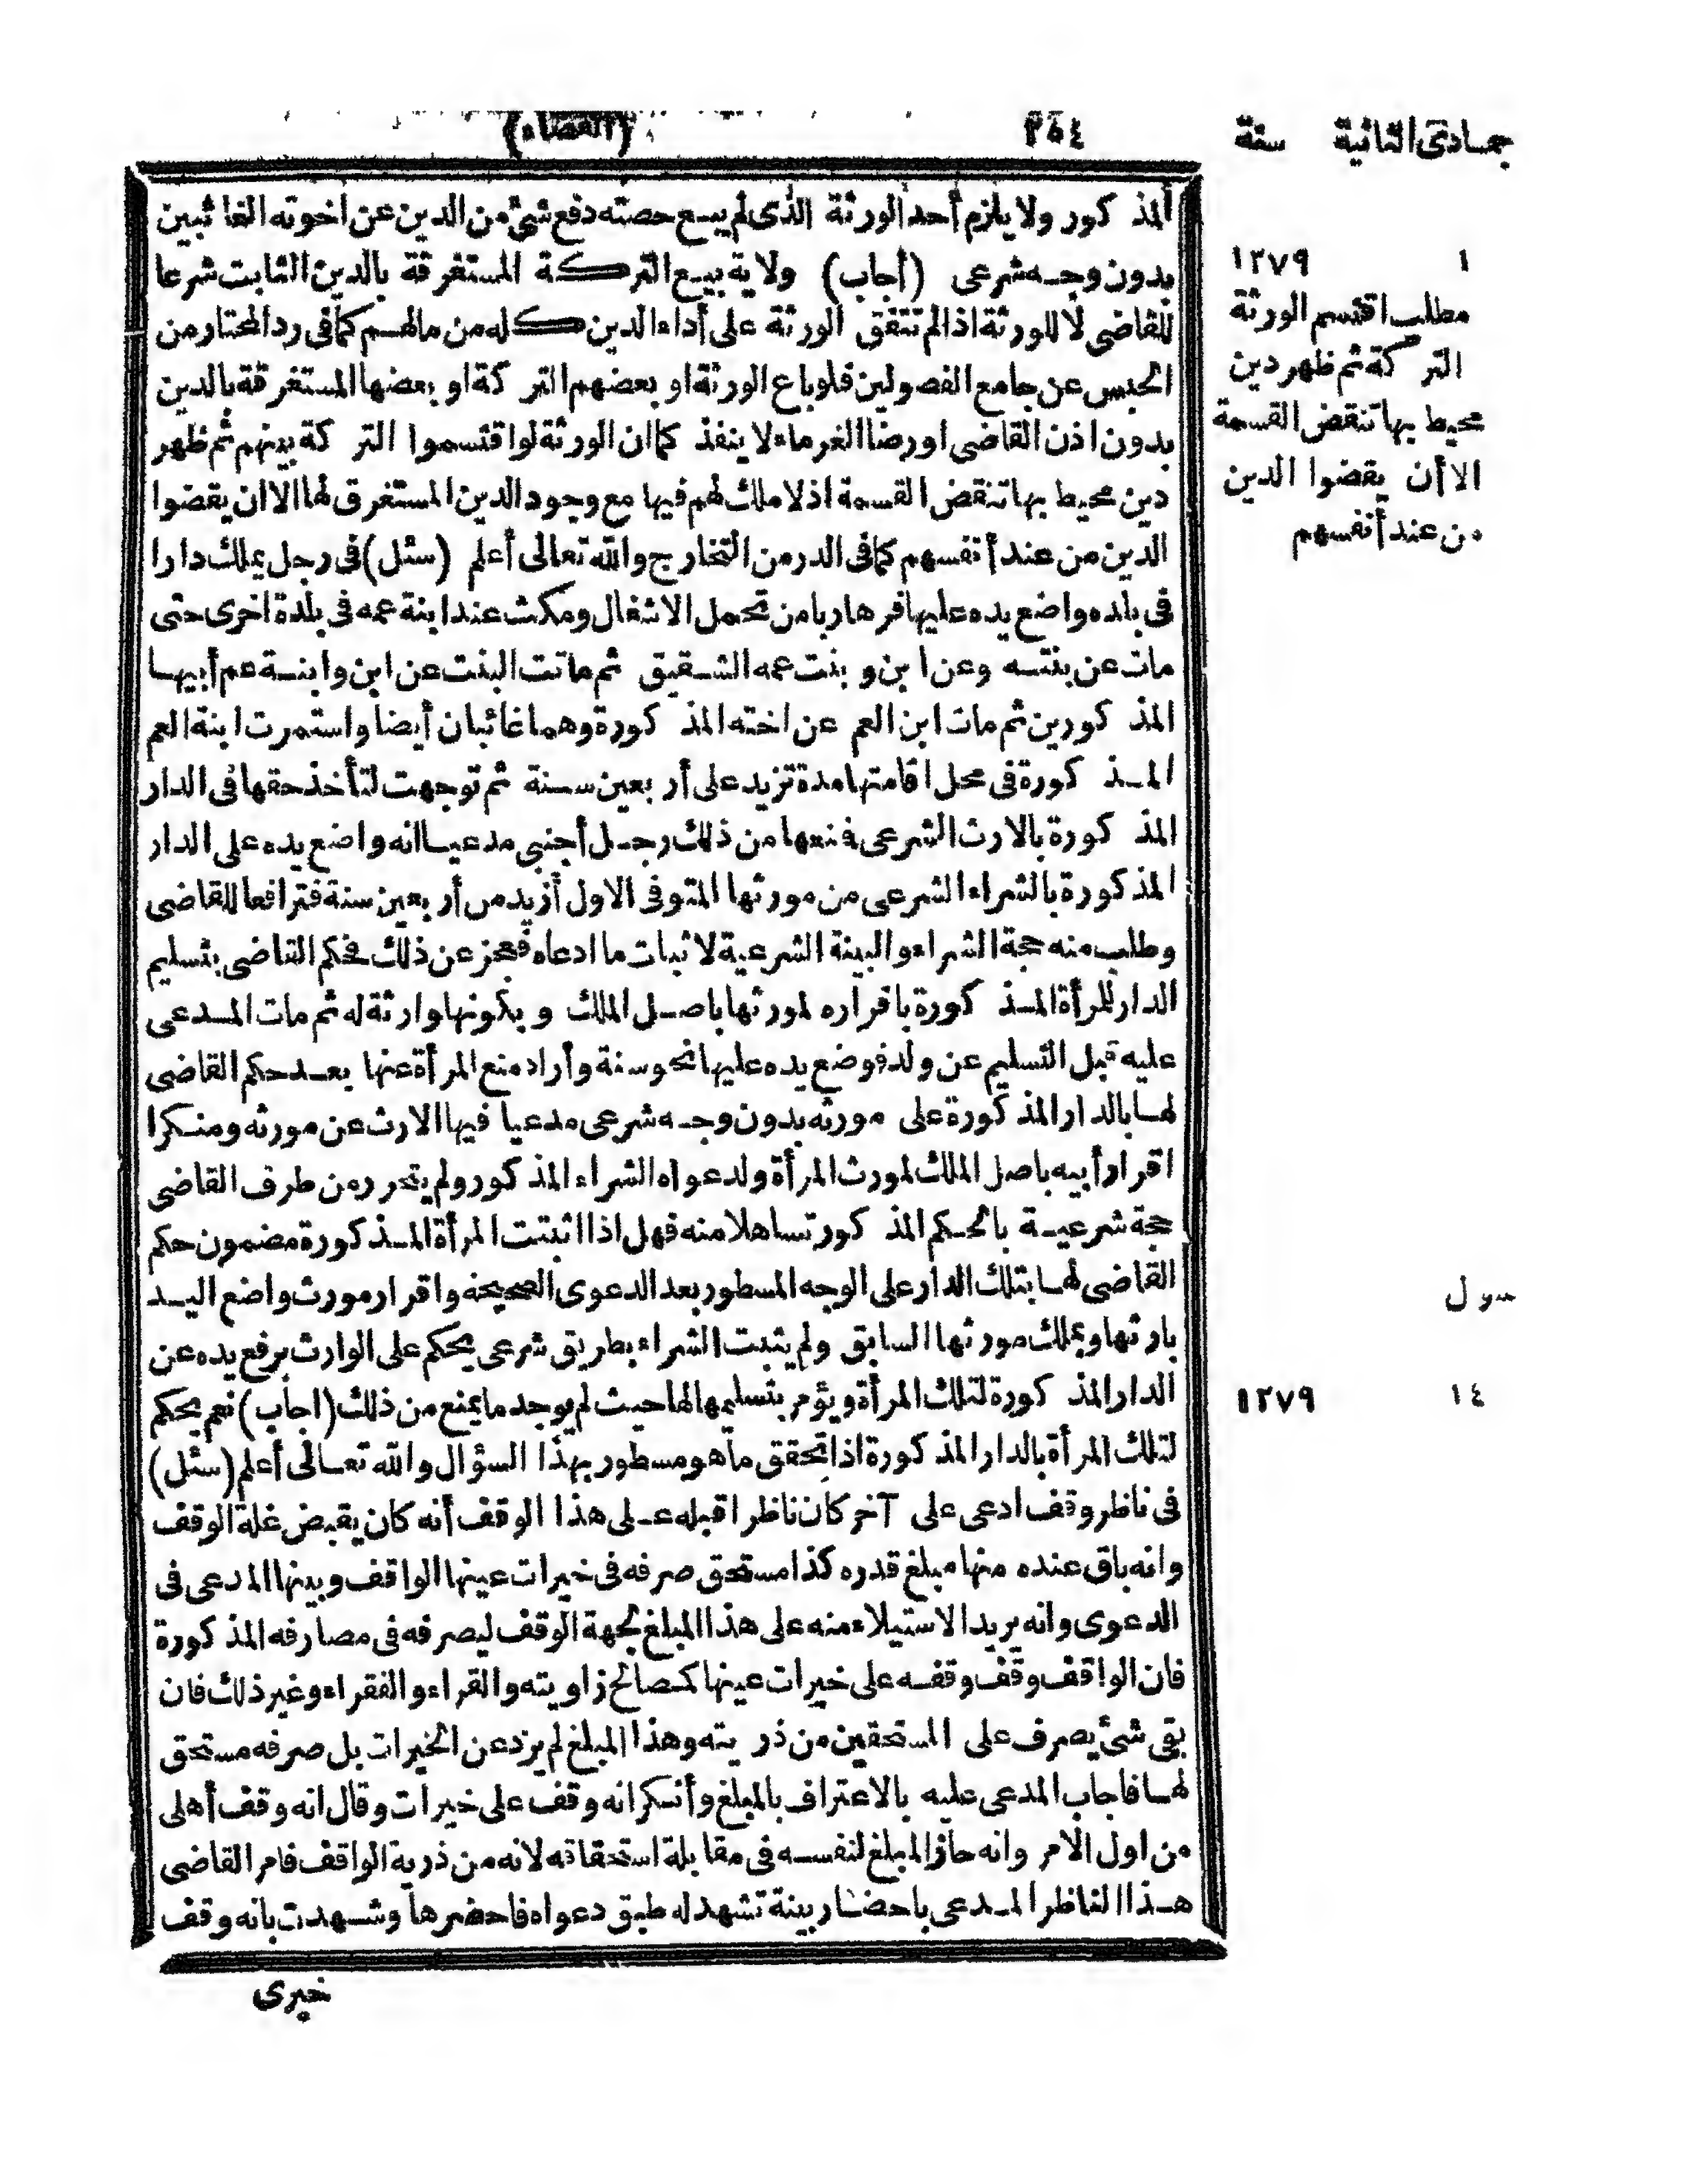 جمادى الثانية سنة
٣٥٤
(القضاء)
المذكور ولا يلزم أحد الورثة الذى لم يبع حصته دفع شئ من الدين عن اخوته الغائبين
بدون وجه شرعى (أجاب) ولاية بيع التركة المستغرقة بالدين الثابت شرعا
للقاضى لا للورثة اذا لم تتفق الورثة على أداء الدين كله من مالهم كما فى رد المحتار من
الحبس عن جامع الفصولين فلو باع الورثة او بعضهم التركة او بعضها المستغرقة بالدين
بدون اذن القاضى او رضا الغرماء لا ينفذ كما ان الورثة لو اقتسموا التركة بينهم ثم ظهر
دين محيط بها تنقض القسمة اذ لا ملك لهم فيها مع وجود الدين المستغرق لها الا ان يقضوا
الدين من عند أنفسهم كما فى الدر من التخارج والله تعالى أعلم (سئل) فى رجل يملك دارا
فى بلده واضع يده عليها فر هاربا من تحمل الاثغال ومكث عند ابنة عمه فى بلدة اخرى حتى
مات عن بنته وعن ابن وبنت عمه الشقيق ثم ماتت البنت عن ابن وابنة عم أبيها
المذكورين ثم مات ابن العم عن اخته المذكورة وهما غائبان أيضا واستمرت ابنة العم
المذكورة فى محل اقامتها مدة تزيد على أربعين سنة ثم توجهت لتأخذ حقها فى الدار
المذكورة بالارث الشرعى فمنعها من ذلك رجل أجنبى مدعيا انه واضع يده على الدار
المذكورة بالشراء الشرعى من مورثها المتوفى الاول أزيد من أربعين سنة فترافعا للقاضى
وطلب منه حجة الشراء والبينة الشرعية لاثبات ما ادعاه فعجز عن ذلك فحكم القاضى بتسليم
الدار للمرأة المذكورة باقراره لمورثها باصل الملك وبكونها وارثة له ثم مات المدعى
عليه قبل التسليم عن ولد فوضع يده عليها نحو سنة وأراد منع المرأة عنها بعد حكم القاضى
لها بالدار المذكورة على مورثه بدون وجه شرعى مدعيا فيها الارث عن مورثه ومنكرا
اقرار أبيه باصل الملك لمورث المرأة ولدعواه الشراء المذكور ولم يتحرر من طرف القاضى
حجة شرعية بالحكم المذكور تساهلا منه فهل اذا اثبتت المرأة المذكورة مضمون حكم
القاضى لها بتلك الدار على الوجه المسطور بعد الدعوى الصحيحة واقرار مورث واضع اليد
بارثها ويملك مورثها السابق ولم يثبت الشراء بطريق شرعى يحكم على الوارث برفع يده عن
الدار المذكورة لتلك المرأة ويؤمر بتسليمها لها حيث لم يوجد ما يمنع من ذلك (اجاب) نعم يحكم
لتلك المرأة بالدار المذكورة اذا تحقق ما هو مسطور بهذا السؤال والله تعالى أعلم (سئل)
فى ناظر وقف ادعى على آخر كان ناظرا قبله على هذا الوقف أنه كان يقبض غلة الوقف
وانه باق عنده منها مبلغ قدره كذا مستحق صرفه فى خيرات عينها الواقف وبينها المدعى فى
الدعوى وانه يريد الاستيلاء منه على هذا المبلغ لجهة الوقف ليصرفه فى مصارفه المذكورة
فان الواقف وقف وقفه على خيرات عينها كمصالح زاويته والقراء والفقراء وغير ذلك فان
بقى شئ يصرف على المستحقين من ذريته وهذا المبلغ لم يزد عن الخيرات بل صرفه مستحق
لها فاجاب المدعى عليه بالاعتراف بالمبلغ وأنكر انه وقف على خيرات وقال انه وقف أهلى
من اول الامر وانه حاز المبلغ لنفسه فى مقابلة استحقاقه لانه من ذرية الواقف فامر القاضى
هذا الناظر المدعى باحضار بينة تشهد له طبق دعواه فاحضرها وشهدت بانه وقف
خيرى
١ ١٢٧٩
مطلب اقتسم الورثة
التركة ثم ظهر دين
محيط بها تنقض القسمة
الا أن يقضوا الدين
من عند أنفسهم
١٤ ١٢٧٩